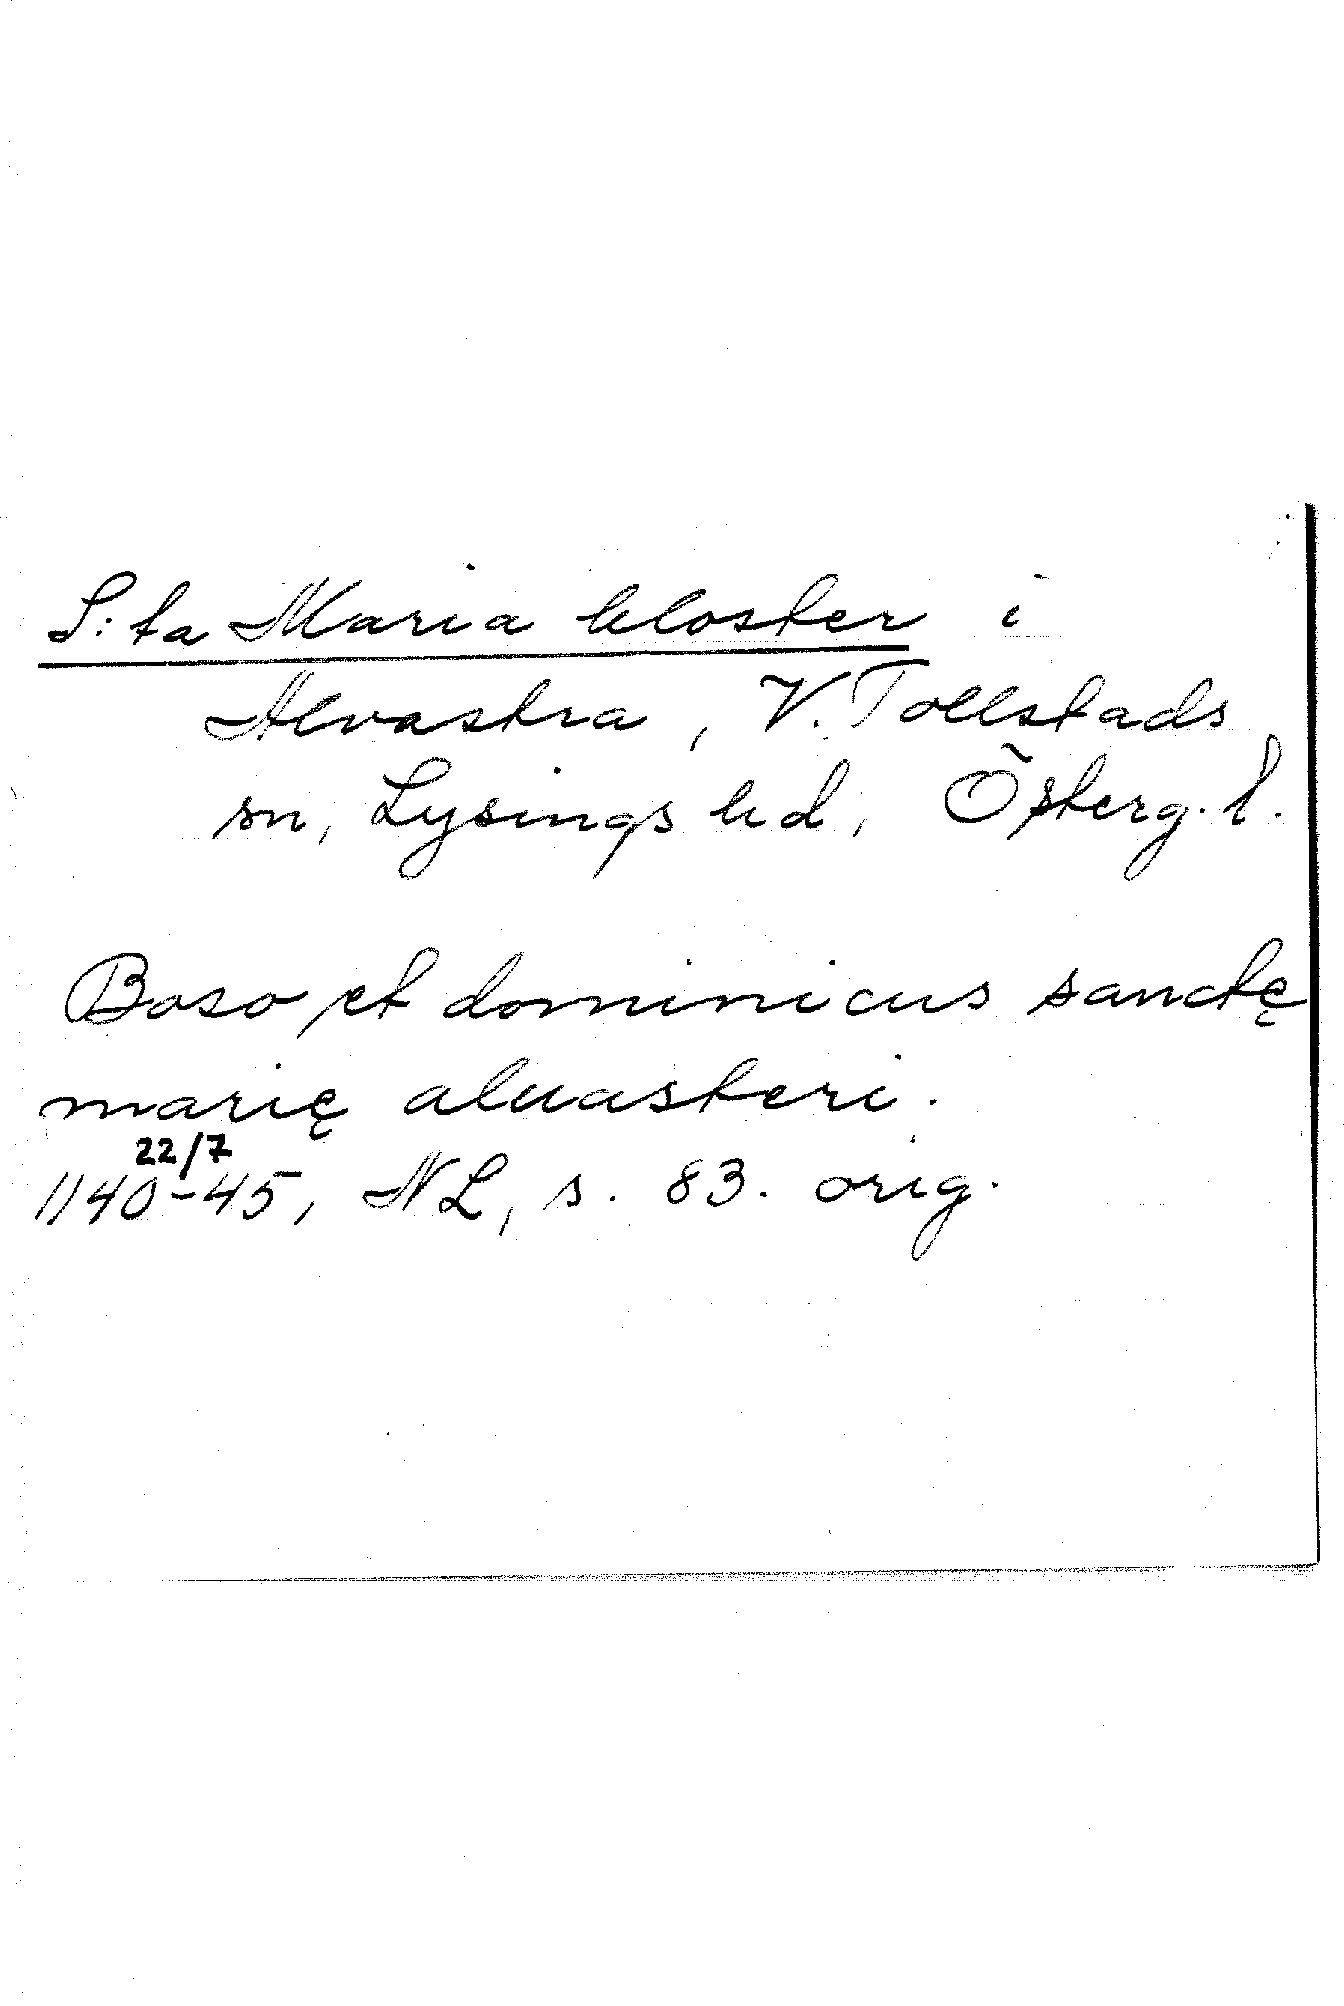 S:ta Maria kloster i
Alvastra, V. Tollstads
sn, Lysings hd, Österg. l.
Boso et dominicus sanctę
marię aluasteri.
22/7
1140-45, NL, s. 83. orig.